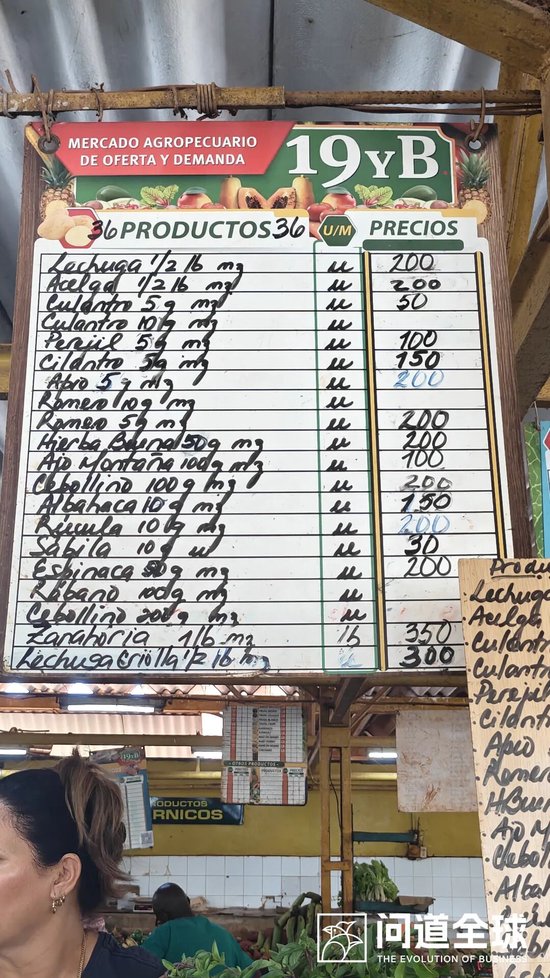 MERCADO AGROPECUARIO
DE OFERTA Y DEMANDA
19 Y B
36 PRODUCTOS 36 U/M PRECIOS
Lechuga 1/2 lb mz u 200
Acelga 1/2 lb mz u 200
Culantro 5 g mz u 50
Culantro 10 g mz u
Perejil 5 g mz u 100
Cilantro 5g mz u 150
Apio 5 g mz u 200
Romero 10g mz u
Romero 5g mz u 200
Hierba Buena 50g mz u 200
Ajo Montaña 100g mz u 100
Cebollino 100g mz u 200
Albahaca 10 g mz u 150
Rúcula 10 g mz u 200
Sabila 10g u u 30
Espinaca 50g mz u 200
Rábano 100g mz u
Cebollino 200g mz u
Zanahoria 1lb mz lb 350
Lechuga Criolla 1/2 lb mz 300
Produ
Lechuga
Acelga
Culant
Culant
Perejil
Cilant
Apio
Romer
H.Buen
Ajo M
Cebol
Albah
OTROS PRODUCTOS
RODUCTOS
RNICOS
问道全球
THE EVOLUTION OF BUSINESS